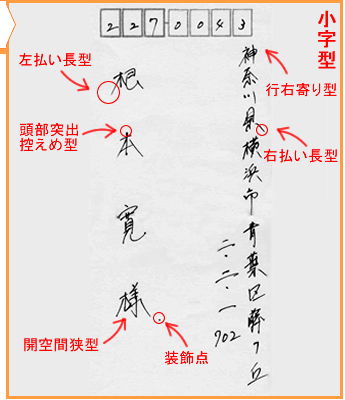 小字型
2270043
神奈川県横浜市青葉区藤ヶ丘
二・二・一
902
根本寛様
左払い長型
頭部突出
控えめ型
行右寄り型
右払い長型
開空間狭型
装飾点